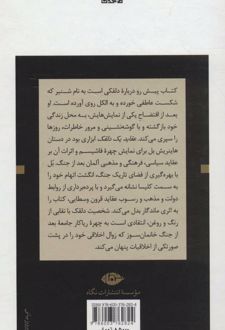 کتاب پیش رو دربارهٔ دلقکی است به نام شنیر که
شکست عاطفی خورده و به الکل روی آورده است. او
بعد از افتضاح یکی از نمایش‌هایش، به محل زندگی
خود بازگشته و با گوشه‌نشینی و مرور خاطرات، روزها
را سپری می‌کند. عقاید یک دلقک ابزاری بود در دستان
هاینریش بل برای نمایش چهرهٔ فاشیسم و اثرات آن بر
عقاید سیاسی، فرهنگی و مذهبی آلمان بعد از جنگ. بل
با بهره‌گیری از فضای تاریک جنگ، انگشت اتهام خود را
به سمت کلیسا نشانه می‌گیرد و با پرده‌برداری از روابط
دولت و مذهب و رسوب عقاید قرون وسطایی، کتاب را
به اثری ماندگار بدل می‌کند. شخصیت دلقک با نقابی از
رنگ و روغن، انتقادی است به چهرهٔ ریاکار جامعهٔ بعد
از جنگ خانمان‌سوز که زوال اخلاقی خود را در پشت
صورتکی از اخلاقیات پنهان می‌کند.
مؤسسهٔ انتشارات نگاه